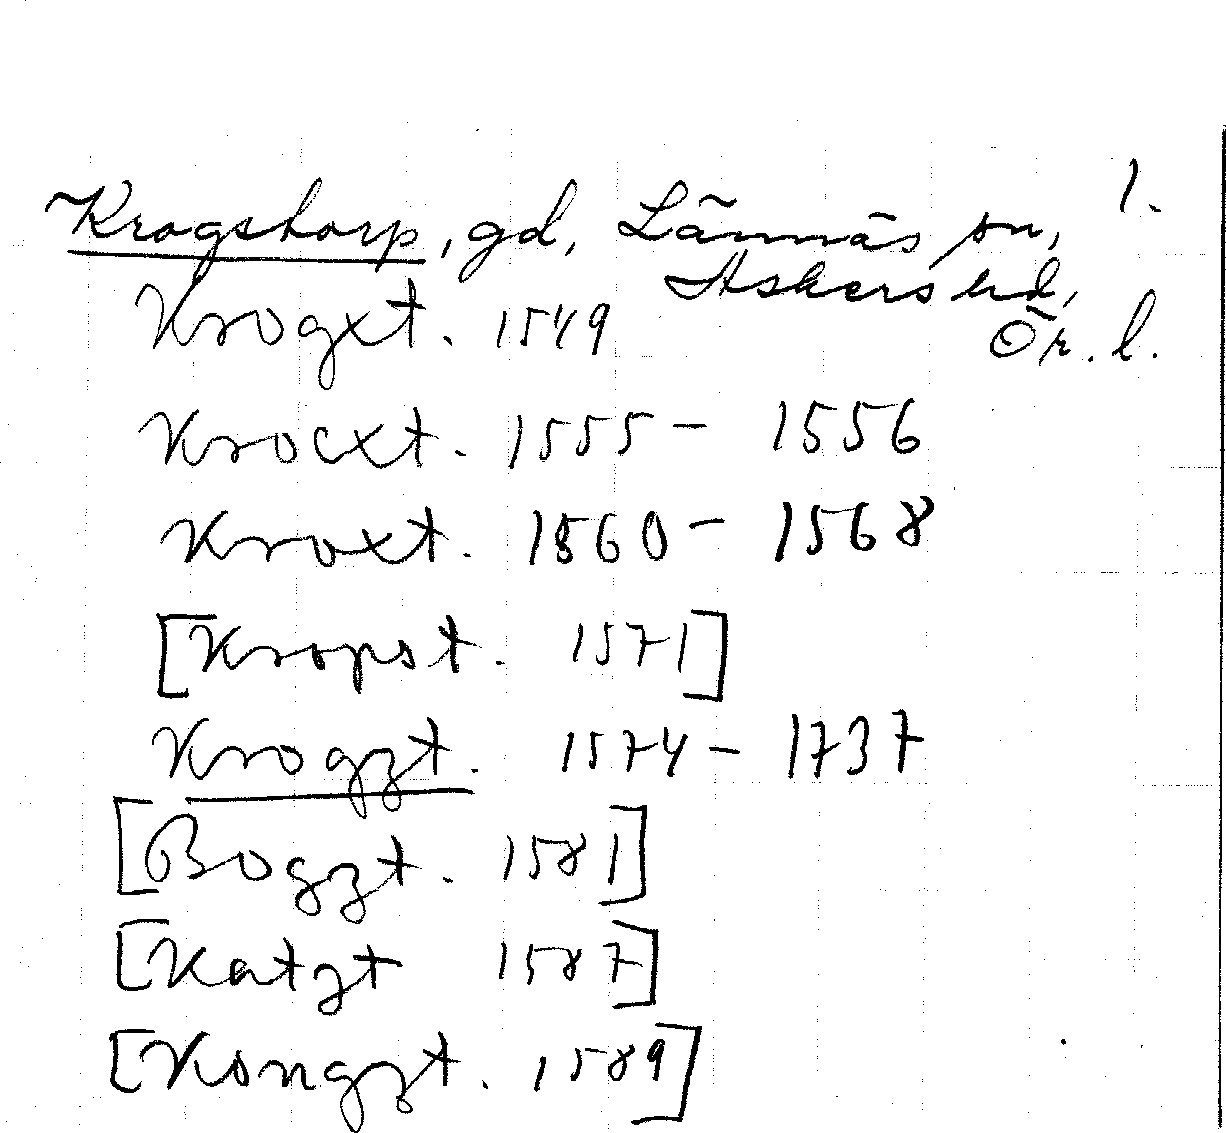 1.
Krogstorp, gd, Lännäs sn,
Askers hd,
Ör. l.
Krogxt. 1549
Krocxt. 1555 - 1556
Kroxt. 1560 - 1568
[Kropst. 1571]
Krogzt. 1574 - 1737
[Bogzt. 1581]
[Katzt 1587]
[Kongzt. 1589]